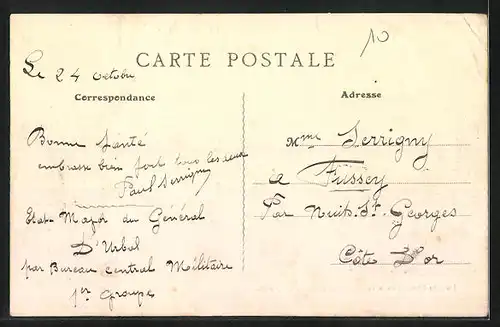 10
CARTE POSTALE
Le 24 octobre
Correspondance
Adresse
Bonne santé
embrasse bien fort tous les deux
Paul Serrigny
Etat-Major du Général
D'Urbal
par Bureau Central Militaire
1er groupe
Mme Serrigny
a Fussey
Par Nuits-St-Georges
Côte D'or